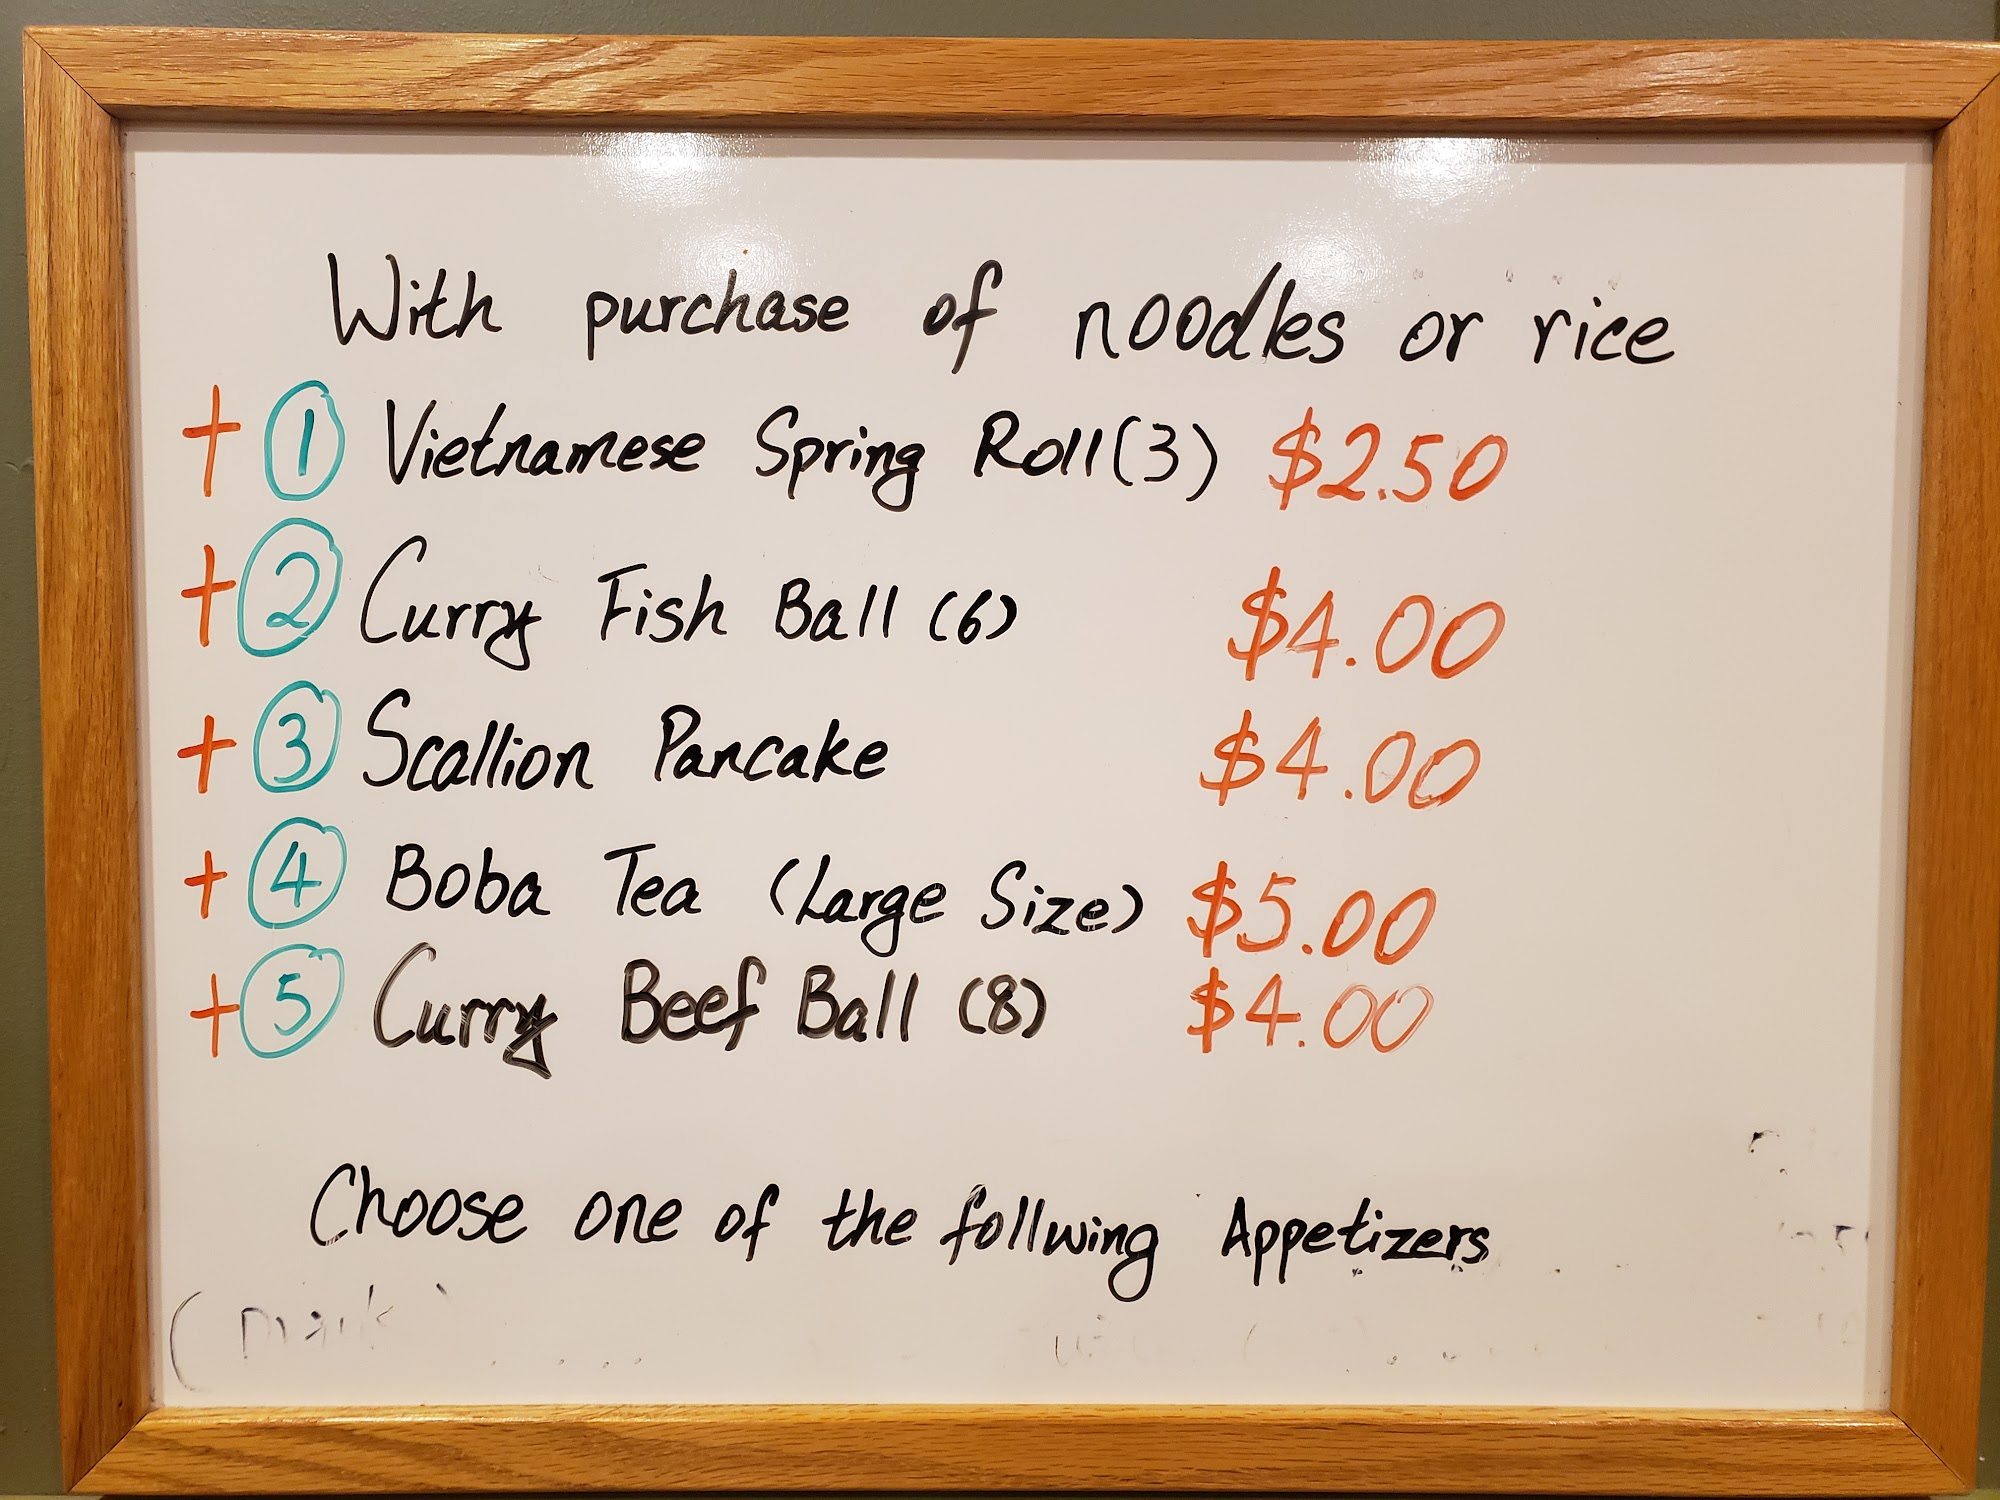 With purchase of noodles or rice
+ ① Vietnamese Spring Roll (3) $2.50
+ ② Curry Fish Ball (6) $4.00
+ ③ Scallion Pancake $4.00
+ ④ Boba Tea (Large Size) $5.00
+ ⑤ Curry Beef Ball (8) $4.00
Choose one of the follwing Appetizers